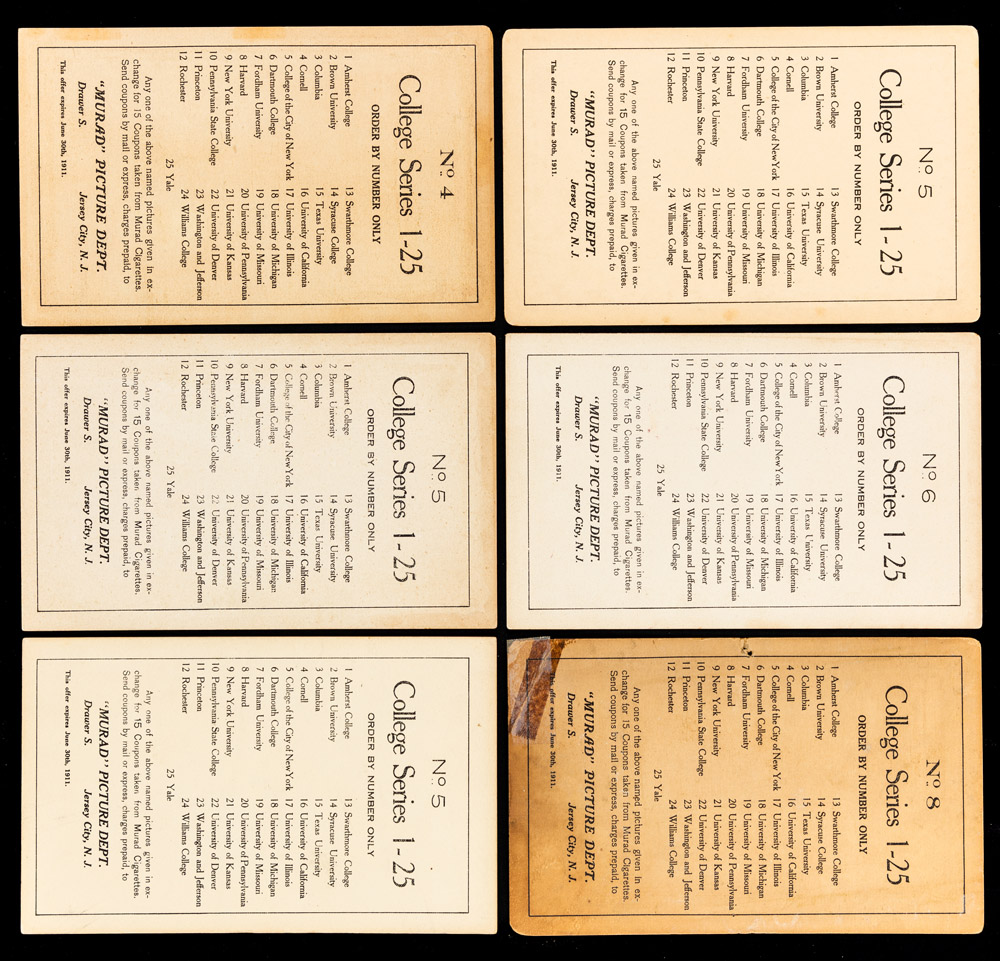 No. 4
College Series 1-25
ORDER BY NUMBER ONLY
1 Amherst College 13 Swarthmore College
2 Brown University 14 Syracuse College
3 Columbia 15 Texas University
4 Cornell 16 University of California
5 College of the City of New York 17 University of Illinois
6 Dartmouth College 18 University of Michigan
7 Fordham University 19 University of Missouri
8 Harvard 20 University of Pennsylvania
9 New York University 21 University of Kansas
10 Pennsylvania State College 22 University of Denver
11 Princeton 23 Washington and Jefferson
12 Rochester 24 Williams College
25 Yale
Any one of the above named pictures given in ex-
change for 15 Coupons taken from Murad Cigarettes.
Send coupons by mail or express, charges prepaid, to
"MURAD" PICTURE DEPT.
Drawer S. Jersey City, N. J.
This offer expires June 30th, 1911.
No. 5
College Series 1-25
ORDER BY NUMBER ONLY
1 Amherst College 13 Swarthmore College
2 Brown University 14 Syracuse University
3 Columbia 15 Texas University
4 Cornell 16 University of California
5 College of the City of New York 17 University of Illinois
6 Dartmouth College 18 University of Michigan
7 Fordham University 19 University of Missouri
8 Harvard 20 University of Pennsylvania
9 New York University 21 University of Kansas
10 Pennsylvania State College 22 University of Denver
11 Princeton 23 Washington and Jefferson
12 Rochester 24 Williams College
25 Yale
Any one of the above named pictures given in ex-
change for 15 Coupons taken from Murad Cigarettes.
Send coupons by mail or express, charges prepaid, to
"MURAD" PICTURE DEPT.
Drawer S. Jersey City, N. J.
This offer expires June 30th, 1911.
No. 5
College Series 1-25
ORDER BY NUMBER ONLY
1 Amherst College 13 Swarthmore College
2 Brown University 14 Syracuse University
3 Columbia 15 Texas University
4 Cornell 16 University of California
5 College of the City of New York 17 University of Illinois
6 Dartmouth College 18 University of Michigan
7 Fordham University 19 University of Missouri
8 Harvard 20 University of Pennsylvania
9 New York University 21 University of Kansas
10 Pennsylvania State College 22 University of Denver
11 Princeton 23 Washington and Jefferson
12 Rochester 24 Williams College
25 Yale
Any one of the above named pictures given in ex-
change for 15 Coupons taken from Murad Cigarettes.
Send coupons by mail or express, charges prepaid, to
"MURAD" PICTURE DEPT.
Drawer S. Jersey City, N. J.
This offer expires June 30th, 1911.
No. 6
College Series 1-25
ORDER BY NUMBER ONLY
1 Amherst College 13 Swarthmore College
2 Brown University 14 Syracuse University
3 Columbia 15 Texas University
4 Cornell 16 University of California
5 College of the City of New York 17 University of Illinois
6 Dartmouth College 18 University of Michigan
7 Fordham University 19 University of Missouri
8 Harvard 20 University of Pennsylvania
9 New York University 21 University of Kansas
10 Pennsylvania State College 22 University of Denver
11 Princeton 23 Washington and Jefferson
12 Rochester 24 Williams College
25 Yale
Any one of the above named pictures given in ex-
change for 15 Coupons taken from Murad Cigarettes.
Send coupons by mail or express, charges prepaid, to
"MURAD" PICTURE DEPT.
Drawer S. Jersey City, N. J.
This offer expires June 30th, 1911.
No. 5
College Series 1-25
ORDER BY NUMBER ONLY
1 Amherst College 13 Swarthmore College
2 Brown University 14 Syracuse University
3 Columbia 15 Texas University
4 Cornell 16 University of California
5 College of the City of New York 17 University of Illinois
6 Dartmouth College 18 University of Michigan
7 Fordham University 19 University of Missouri
8 Harvard 20 University of Pennsylvania
9 New York University 21 University of Kansas
10 Pennsylvania State College 22 University of Denver
11 Princeton 23 Washington and Jefferson
12 Rochester 24 Williams College
25 Yale
Any one of the above named pictures given in ex-
change for 15 Coupons taken from Murad Cigarettes.
Send coupons by mail or express, charges prepaid, to
"MURAD" PICTURE DEPT.
Drawer S. Jersey City, N. J.
This offer expires June 30th, 1911.
No. 8
College Series 1-25
ORDER BY NUMBER ONLY
1 Amherst College 13 Swarthmore College
2 Brown University 14 Syracuse College
3 Columbia 15 Texas University
4 Cornell 16 University of California
5 College of the City of New York 17 University of Illinois
6 Dartmouth College 18 University of Michigan
7 Fordham University 19 University of Missouri
8 Harvard 20 University of Pennsylvania
9 New York University 21 University of Kansas
10 Pennsylvania State College 22 University of Denver
11 Princeton 23 Washington and Jefferson
12 Rochester 24 Williams College
25 Yale
Any one of the above named pictures given in ex-
change for 15 Coupons taken from Murad Cigarettes.
Send coupons by mail or express, charges prepaid, to
"MURAD" PICTURE DEPT.
Drawer S. Jersey City, N. J.
offer expires June 30th, 1911.